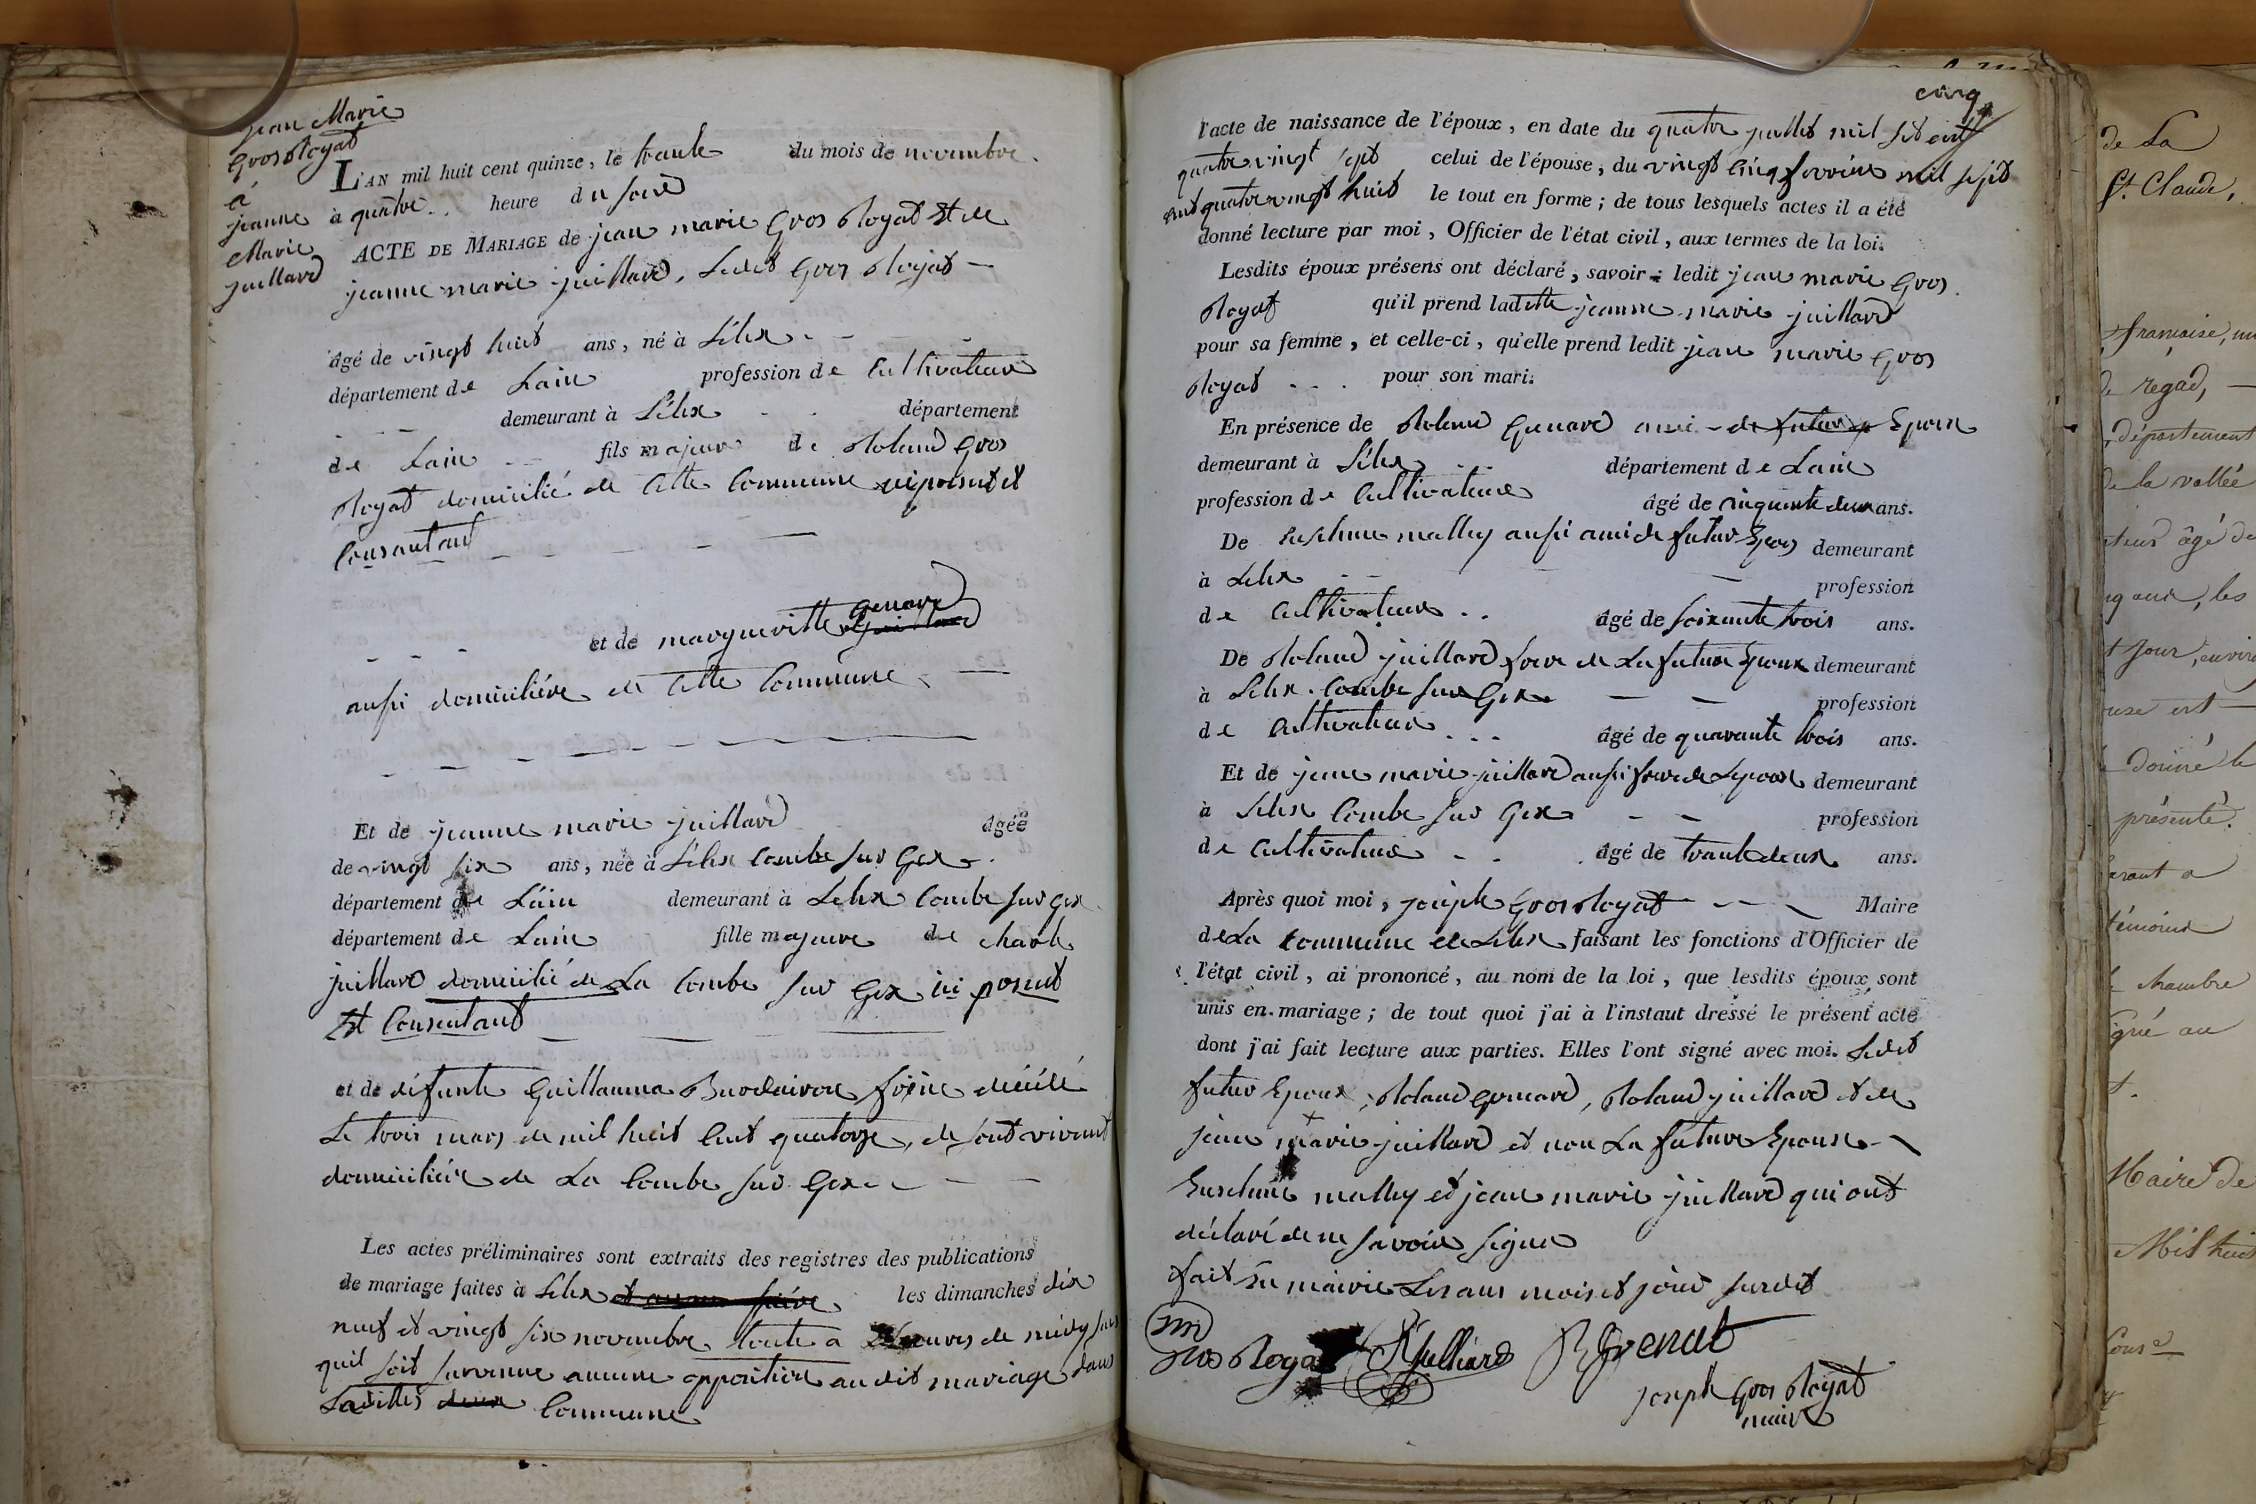 jean Marie
Gros Royat
à
jeanne
Marie
juillard
L'AN mil huit cent quinze, le trante du mois de novembre.
à quatre.. heure du soire
ACTE DE MARIAGE de jean marie Gros Royat Et de
jeanne marie juillard, Ledit Gros Royat —
âgé de vingt huit ans, né à Lélex. - —
département de Lain profession de Cultivateur
- — — demeurant à Lélex - . département
de Lain - - fils majeur de Roland Gros
Royat domicilié de Cette Commune
Consantant
- - - et de margueritte Genard
aussi domicilière de Cette Commune - —
Et de jeanne marie juillard âgée
de vingt six ans, née à Lélex Combe sur Gex - .
département de Lain demeurant à Lelex Combe sur Gex
département de Lain fille majeure de Charle
juillard domicilié de La Combe sur Gex ici présent
Et Consentant
et de défunte Guillauma
Le trois mars de mil huit Cent quatorze, de sont vivant
domicilière de La Combe sur Gex - — —
Les actes préliminaires sont extraits des registres des publications
de mariage faites à Lelex les dimanches dix
neuf et vingt six novembre toute a heures de midy sans
quil soit survenue aucune opposition audit mariage dans
Laditte Commune
cinq
l'acte de naissance de l'époux, en date du quatre juillet mil set cent
quatre vingt sept celui de l'épouse, du vingt cinq fevrier mil sept
cent quatre vingt huit le tout en forme ; de tous lesquels actes il a été
donné lecture par moi, Officier de l'état civil, aux termes de la loi.
Lesdits époux présens ont déclaré, savoir : ledit jean marie Gros
Royat qu'il prend laditte jeanne marie juillard
pour sa femme, et celle-ci, qu'elle prend ledit jean marie Gros
Royat - - . pour son mari.
En présence de Roland Genard ami de futur Epoux
demeurant à Lélex - - département de Lain
profession de Cultivateur âgé de cinquante deux ans.
De malley aussi ami de futur Epoux demeurant
à Lelex - — — profession
de Cultivateur .. âgé de soixante trois ans.
De Roland juillard frere de La future Epouse demeurant
à Lelex. Combe sur Gex — — profession
de Cultivateur . . . âgé de quarante trois ans.
Et de jean marie juillard aussi frere de Lepouse demeurant
à Lelex Combe sur Gex - — profession
de Cultivateur - . âgé de trante deux ans.
Après quoi moi, joseph Gros Royat - - — Maire
de La Commune de Lelex faisant les fonctions d'Officier de
l'état civil, ai prononcé, au nom de la loi, que lesdits époux sont
unis en mariage ; de tout quoi j'ai à l'instaut dressé le présent acte
dont j'ai fait lecture aux parties. Elles l'ont signé avec moi. Ledit
futur Epoux, Roland Genard, Roland juillard et de
jean marie juillard et non La future Epouse -
malley et jean marie juillard qui ont
déclaré de ne savoire signer
fait En mairie Les ans mois et jour susdit
jm
Gros Royat R Juilliard R Grenat
joseph Gros Royat
maire
de La
St. Claude,
française, un
de régad, —
département
de la vallée
âgé de
les
est —
donné le
présenté.
témoins
chambre
au
Maire de
Mil huit